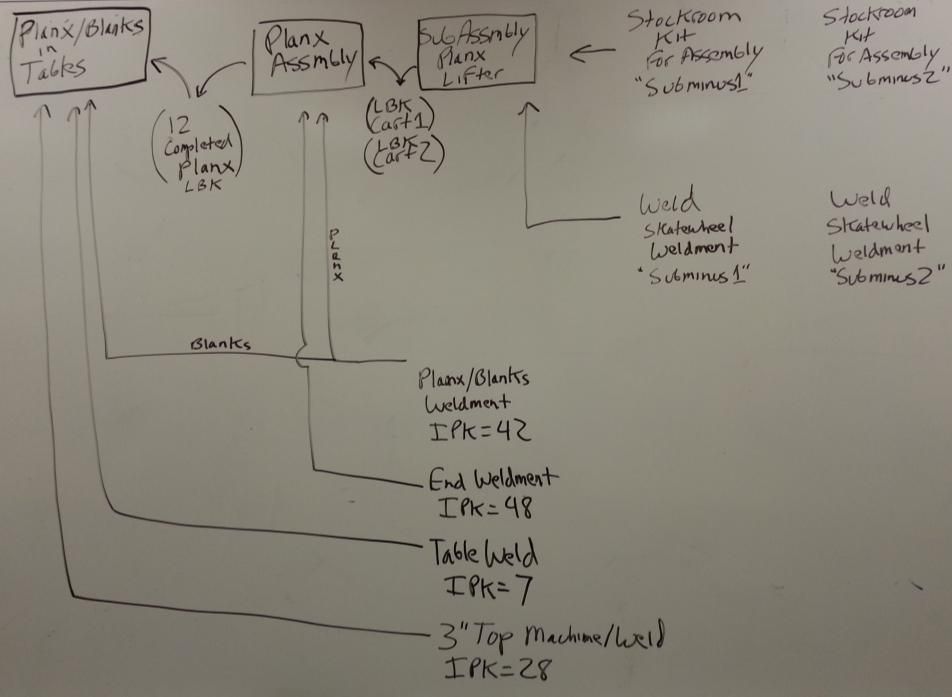 Planx/Blanks
in
Tables
Planx
Assmbly
SubAssmbly
Planx
Lifter
Stockroom
Kit
For Assembly
"Subminus1"
Stockroom
Kit
For Assembly
"Subminus2"
(12
Completed
Planx
LBK)
(LBK
Cart1)
(LBK
Cart2)
Weld
Skatewheel
Weldment
"Subminus1"
Weld
Skatewheel
Weldment
"Subminus2"
Planx
Blanks
Planx/Blanks
Weldment
IPK=42
End Weldment
IPK=48
Table Weld
IPK=7
3" Top Machine/Weld
IPK=28